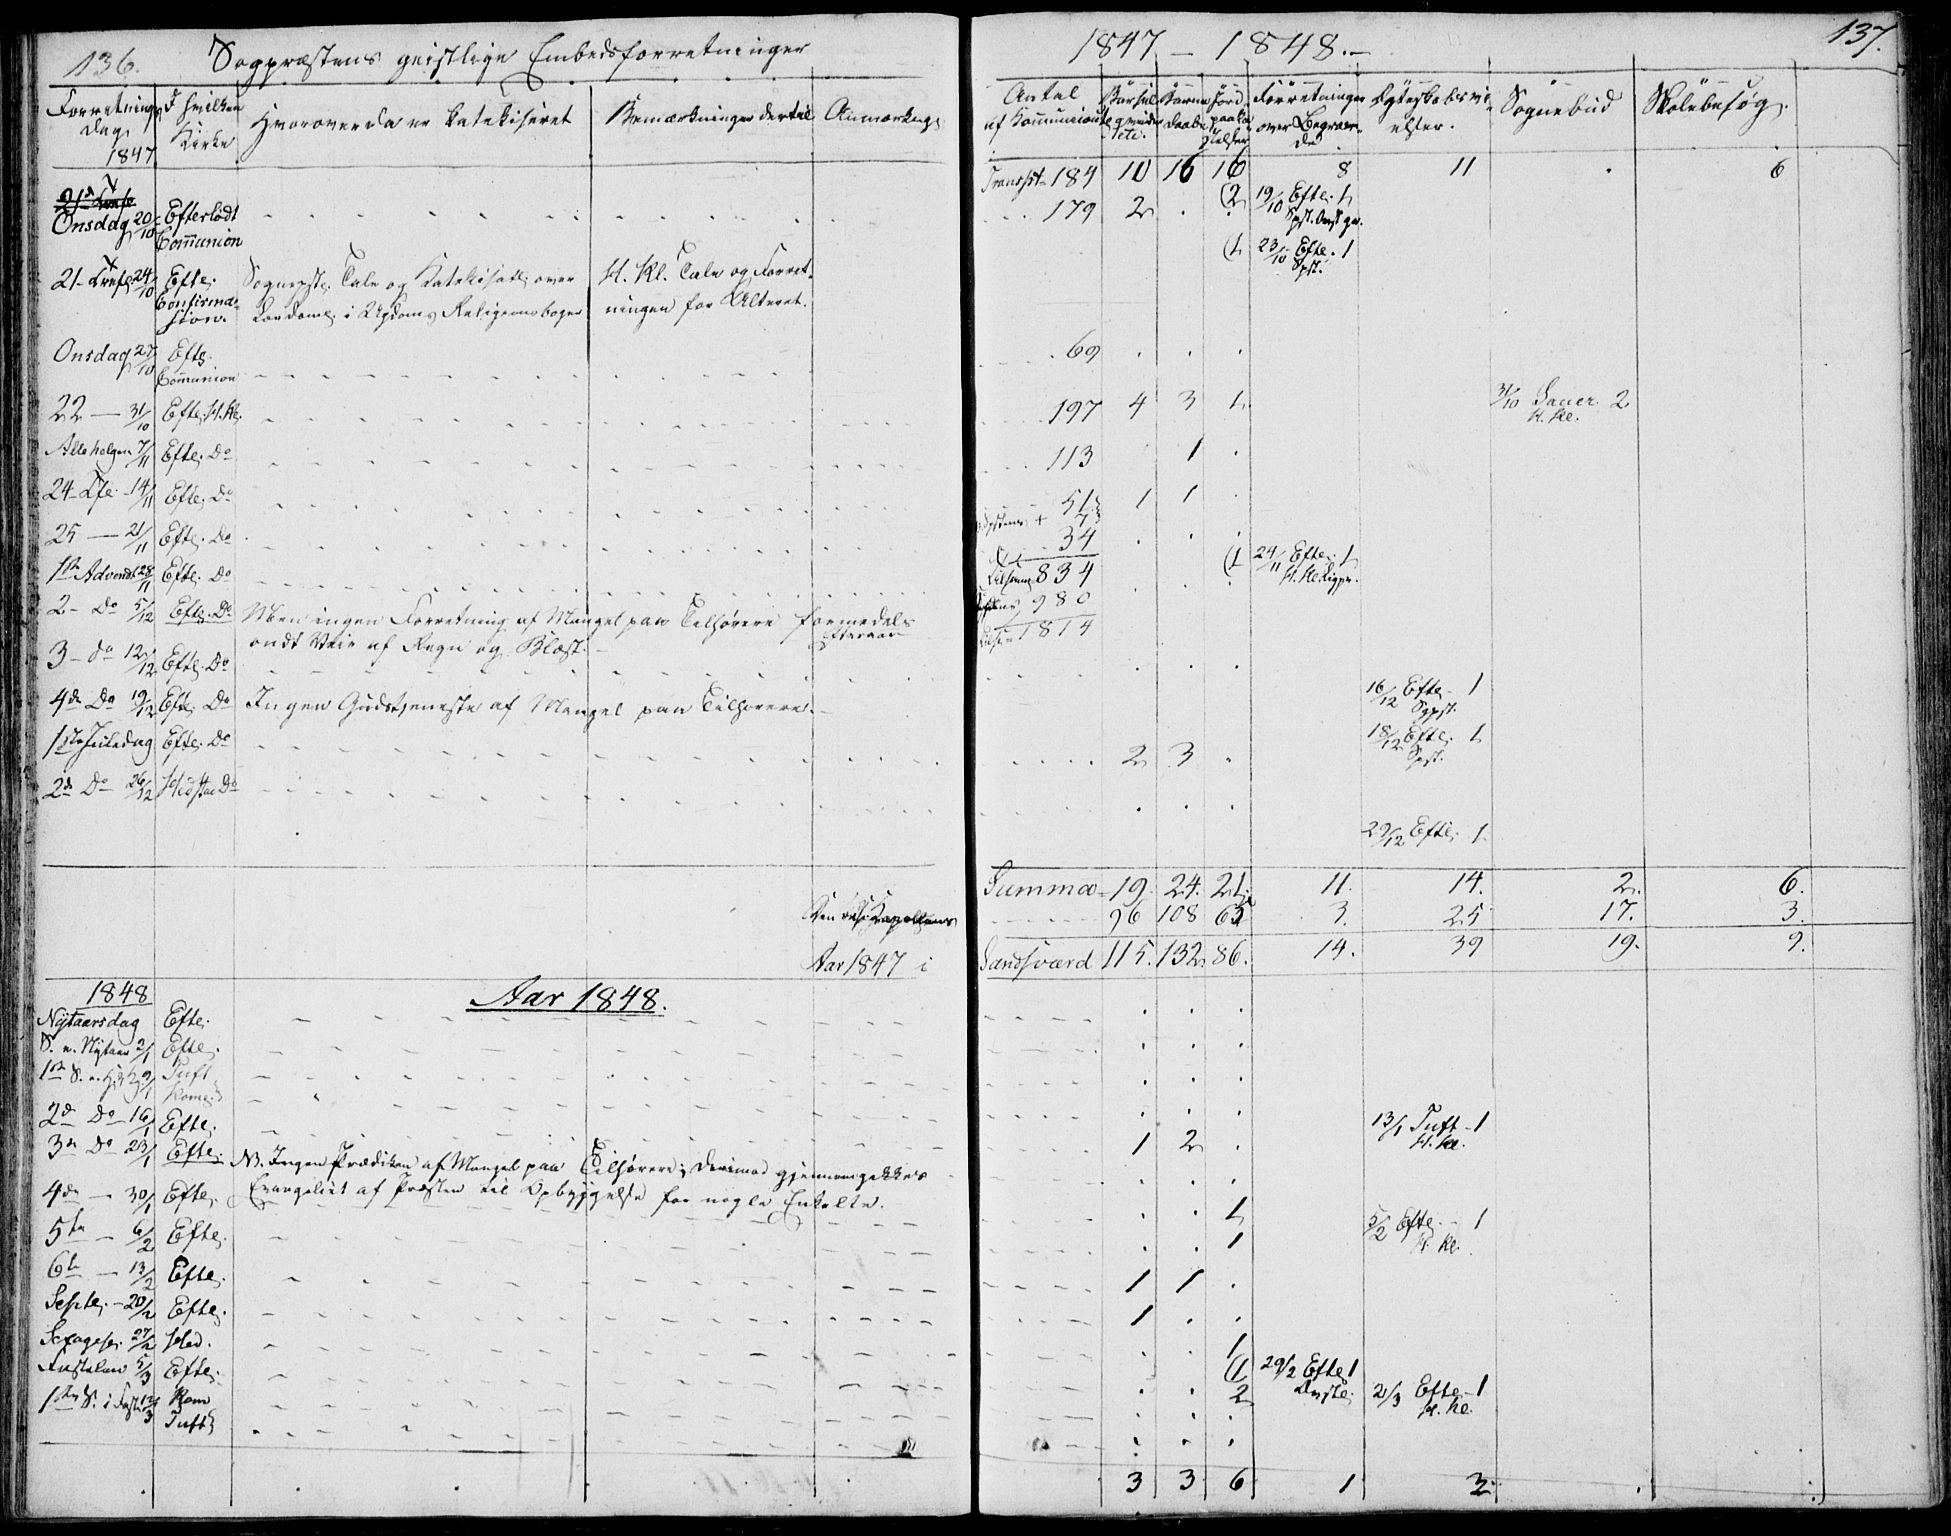 136. Sogpræstens geistlige Embedsforretninger
Forretnings Dag 1847
I hvilken Kirke
Hvorover da er Catekiseret
Bemærkninger dertil
Anmærkng.
Onsdag 20/10 Efterlødt Communion
21- Trefs. 24/10 Efte. Confirmasion. Sognepst. Tale og Katekisatn over H. Kl. Tale og Forret-
Lærdome i Ungdoms Religionsboger ningen for Alteret.
Onsdag 27/10 Efte. Communion
22 — 31/10 Efte. H. Kl.
Allehelgen 7/11 Efte. Do
24- Tfe. 14/11 Efte. Do
25 — 21/11 Efte. Do
1ste Advendt 28/11 Efte. Do
2- Do 5/12 Efte. Do Men ingen Forretning af Mangel paa Tilhørere formedels
ondt Veir af Regn og Blæst.
3- do 12/12 Efte. Do
4de Do 19/12 Efte. Do Ingen Gudstjeneste af Mangel paa Tilhørere.
1ste Juledag Efte. Do
2de Do 26/12 Hedsta Do
Aar 1847 i
1848
Aar 1848.
Nytaarsdag Efte.
S. e. Nytaar 2/1 Efte.
1ste S. e. H. 3 K. 9/1 Tuft
Kome.
2de Do 16/1 Efte.
3de Do 23/1 Efte. NB. Ingen Prædiken af Mangel paa Tilhørere; derimod gjennemgikkes
Evangeliet af Præsten til Opbyggelse for nogle Enkelte.
4de — 30/1 Efte.
5te — 6/2 Efte.
6te — 13/2 Efte.
Septe. — 20/2 Efte.
Sexages. 27/2 Hed.
Fastelavn 5/3 Efte.
1ste S. i Fast. 12/3 Kom
Tuft
1847 — 1848. — 137.
Antal af Kommunicante
Barselqvinder etc.
Børne daabe
Jordpaakastelser
Forretninger over Begravede
Ægteskabsvielser.
Sognebud
Skolebesøg.
Transpt- 184 10 16 16 8 11 . 6
179 2 . . (2 19/10 Efte. 1
(1 23/10 Efte. 1
Spst.
69 . . .
197 4 3 1 31/10 Sauer 2
H. Kl.
113 1 .
51 1 1 .
+ 7
34 . . .
(1 24/11 Efte. 1
H. Kl. Ligpr.
Tilsamm 834
980
1814
16/12 Efte. 1
Sgpst.
18/12 Efte. 1
Spst.
2 3 .
29/12 Efte. 1
Summa- 19. 24. 21. 11. 14. 2. 6.
Den res. Kapellans 96 108 65 3. 25 17. 3.
Sandsværd 115. 132. 86. 14. 39 19. 9.
13/1 Tuft - 1
H. Kl.
1 2 .
. . 1 5/2 Efte. - 1
H. Kl.
. . 1
1 1 .
1 . .
. . 1
(1 29/2 Efte 1
. . 2 2/3 Efte - 1
H. Kl.
3 3 6 1 3